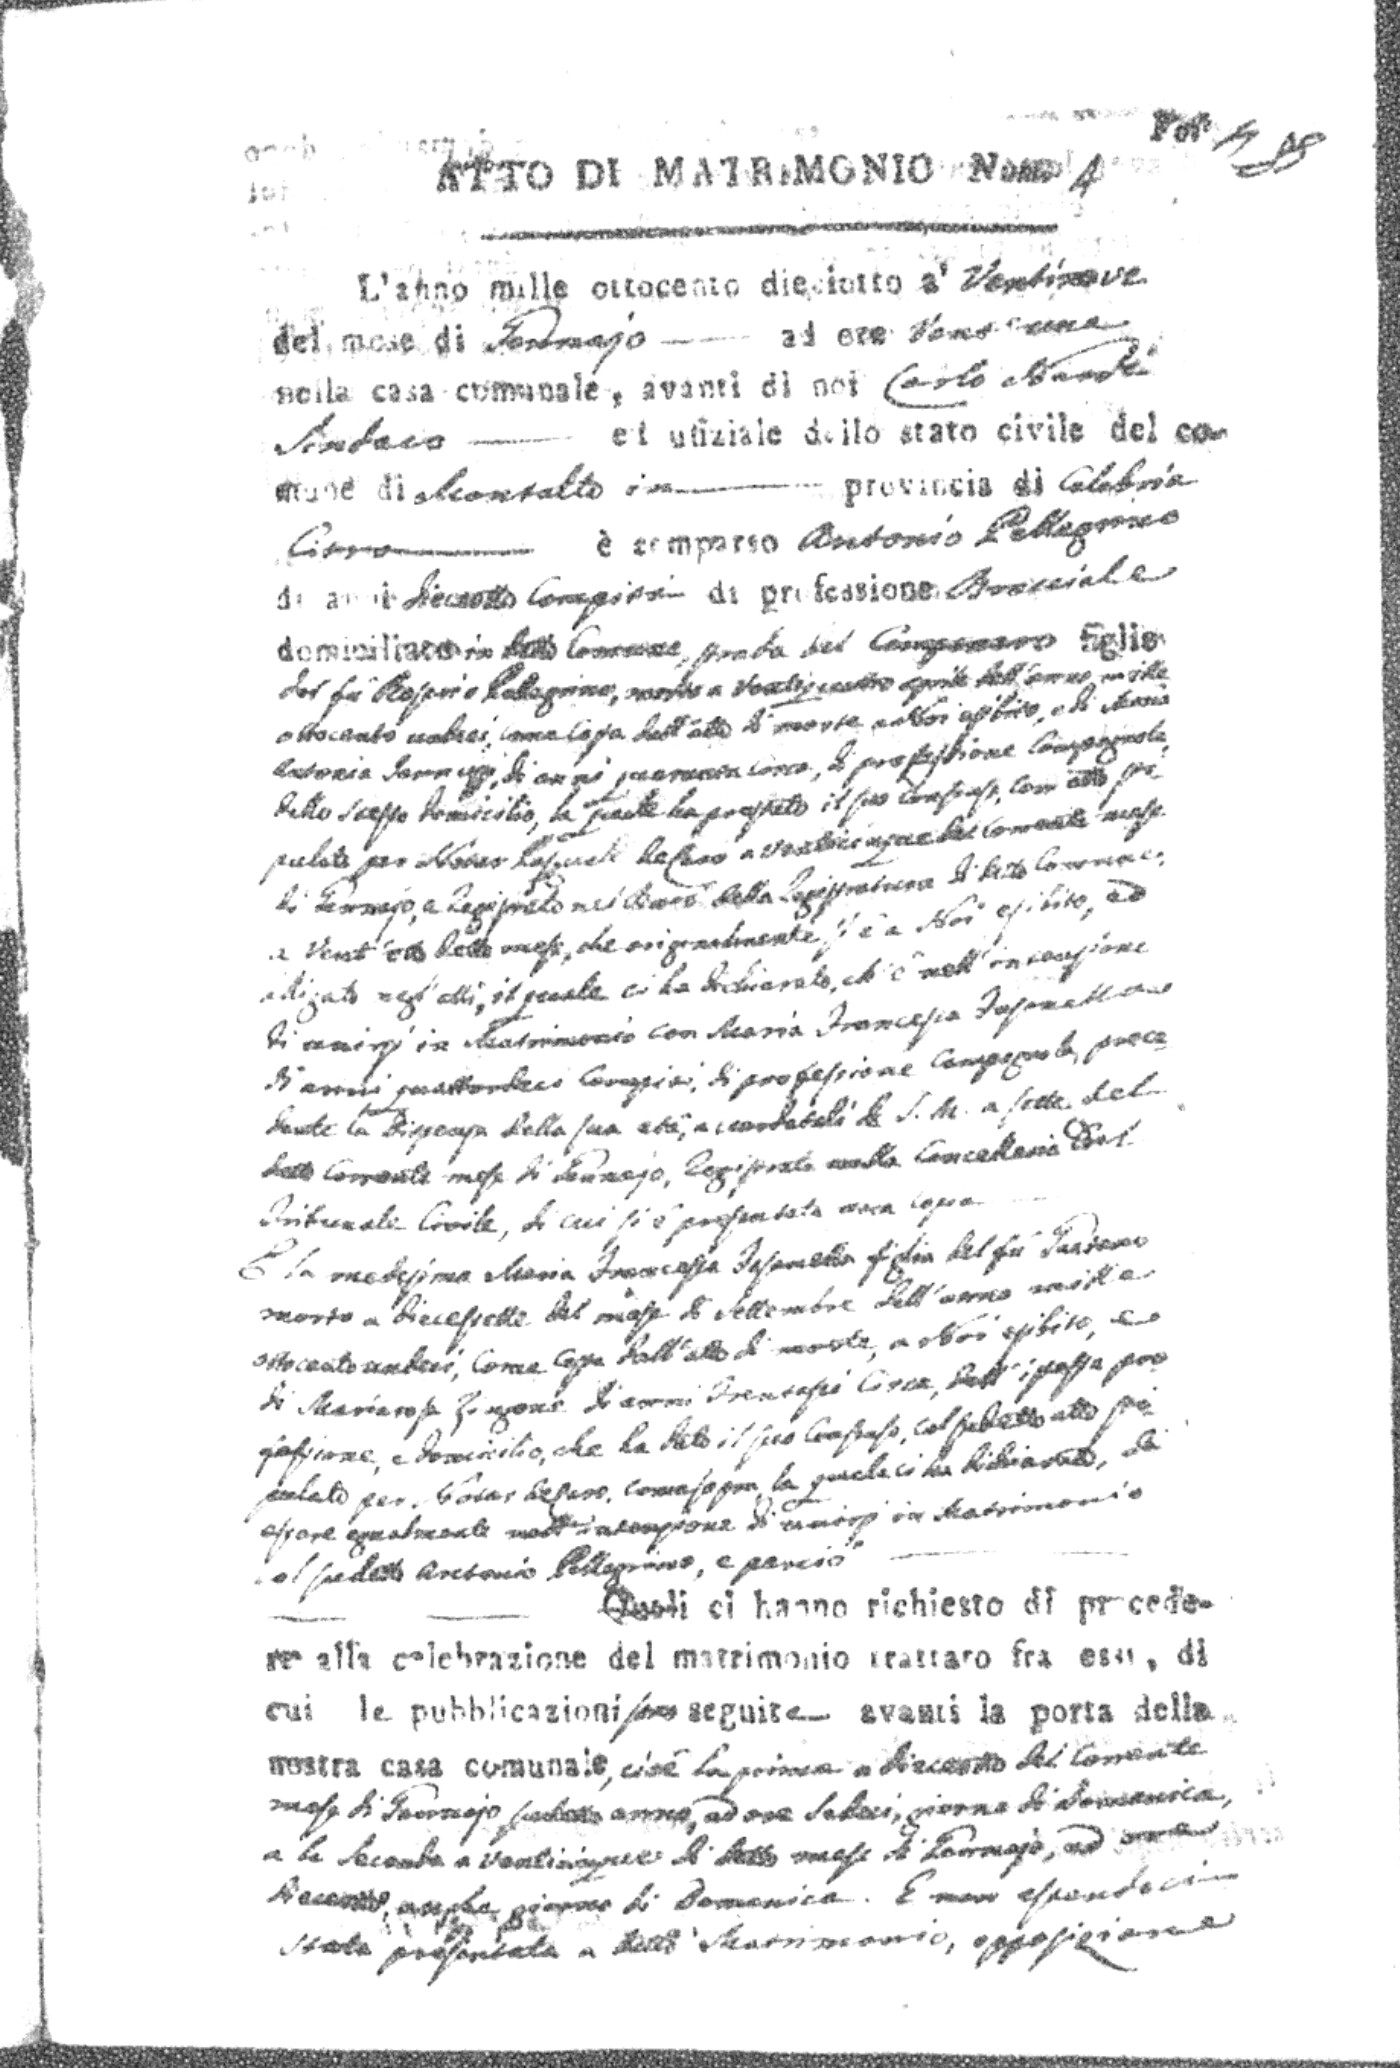 Fol
ATTO DI MATRIMONIO Num 4
L'anno mille ottocento dieciotto a' Ventinove
del mese di Gennajo ad ore Vent'una
nella casa comunale, avanti di noi Carlo Nardi
Sindaco ed ufiziale dello stato civile del co-
mune di Montalto in provincia di Calabria
Citra è comparso Antonio Pellegrino
di anni dieciotto compiti di professione Bracciale
domiciliato in detto Comune, strada del figlio
del fù Rosario Pellegrino, morto a ventiquattro aprile dell'anno mille
ottocento undici, come copia dell'atto di morte a Noi esibito, e di Maria
Antonia di anni quaranta circa, di professione Campagnola,
dello stesso domicilio, la quale ha prestato il suo consenso, con atto sti-
pulato per Notar Pasquale a venticinque del corrente mese
di Gennajo, e registrato nel della Registratura di detto Comune,
a vent'otto detto mese, che originalmente si è a Noi esibito, ed
alligato negl'atti, il quale ci ha dichiarato, ch'è nell'intenzione
di unirsi in Matrimonio con Maria Francesca
di anni quattordici compiti, di professione Campagnola, prece-
dente la dispensa della sua età, accordatali da S. M. a sette del
detto corrente mese di Gennajo, registrata nella Cancelleria del
Tribunale Civile, di cui si è presentata una copia
E la medesima Maria Francesca figlia del fù
morto a diecessette del mese di Settembre dell'anno mille
ottocento undici, come copia dall'atto di morte, a Noi esibito, e
di Mariarosa Zingone di anni trentasei circa, dell'istessa pro-
fessione, e domicilio, che ha dato il suo consenso, col sudetto atto sti-
pulato per Notar come sopra, la quale ci ha dichiarato, di
essere egualmente nell'intenzione di unirsi in Matrimonio
col sudetto Antonio Pellegrino, e perciò
Quali ci hanno richiesto di procede-
re alla celebrazione del matrimonio trattato fra essi, di
cui le pubblicazioni sono seguite avanti la porta della
nostra casa comunale, cioè la prima a dieciotto del corrente
mese di Gennajo sudetto anno, ad ore sedeci, giorno di Domenica,
e la seconda a venticinque di detto mese di Gennajo, ad ore
dieciotto, anche giorno di Domenica. E non essendoci
stata presentata a detto Matrimonio, opposizione